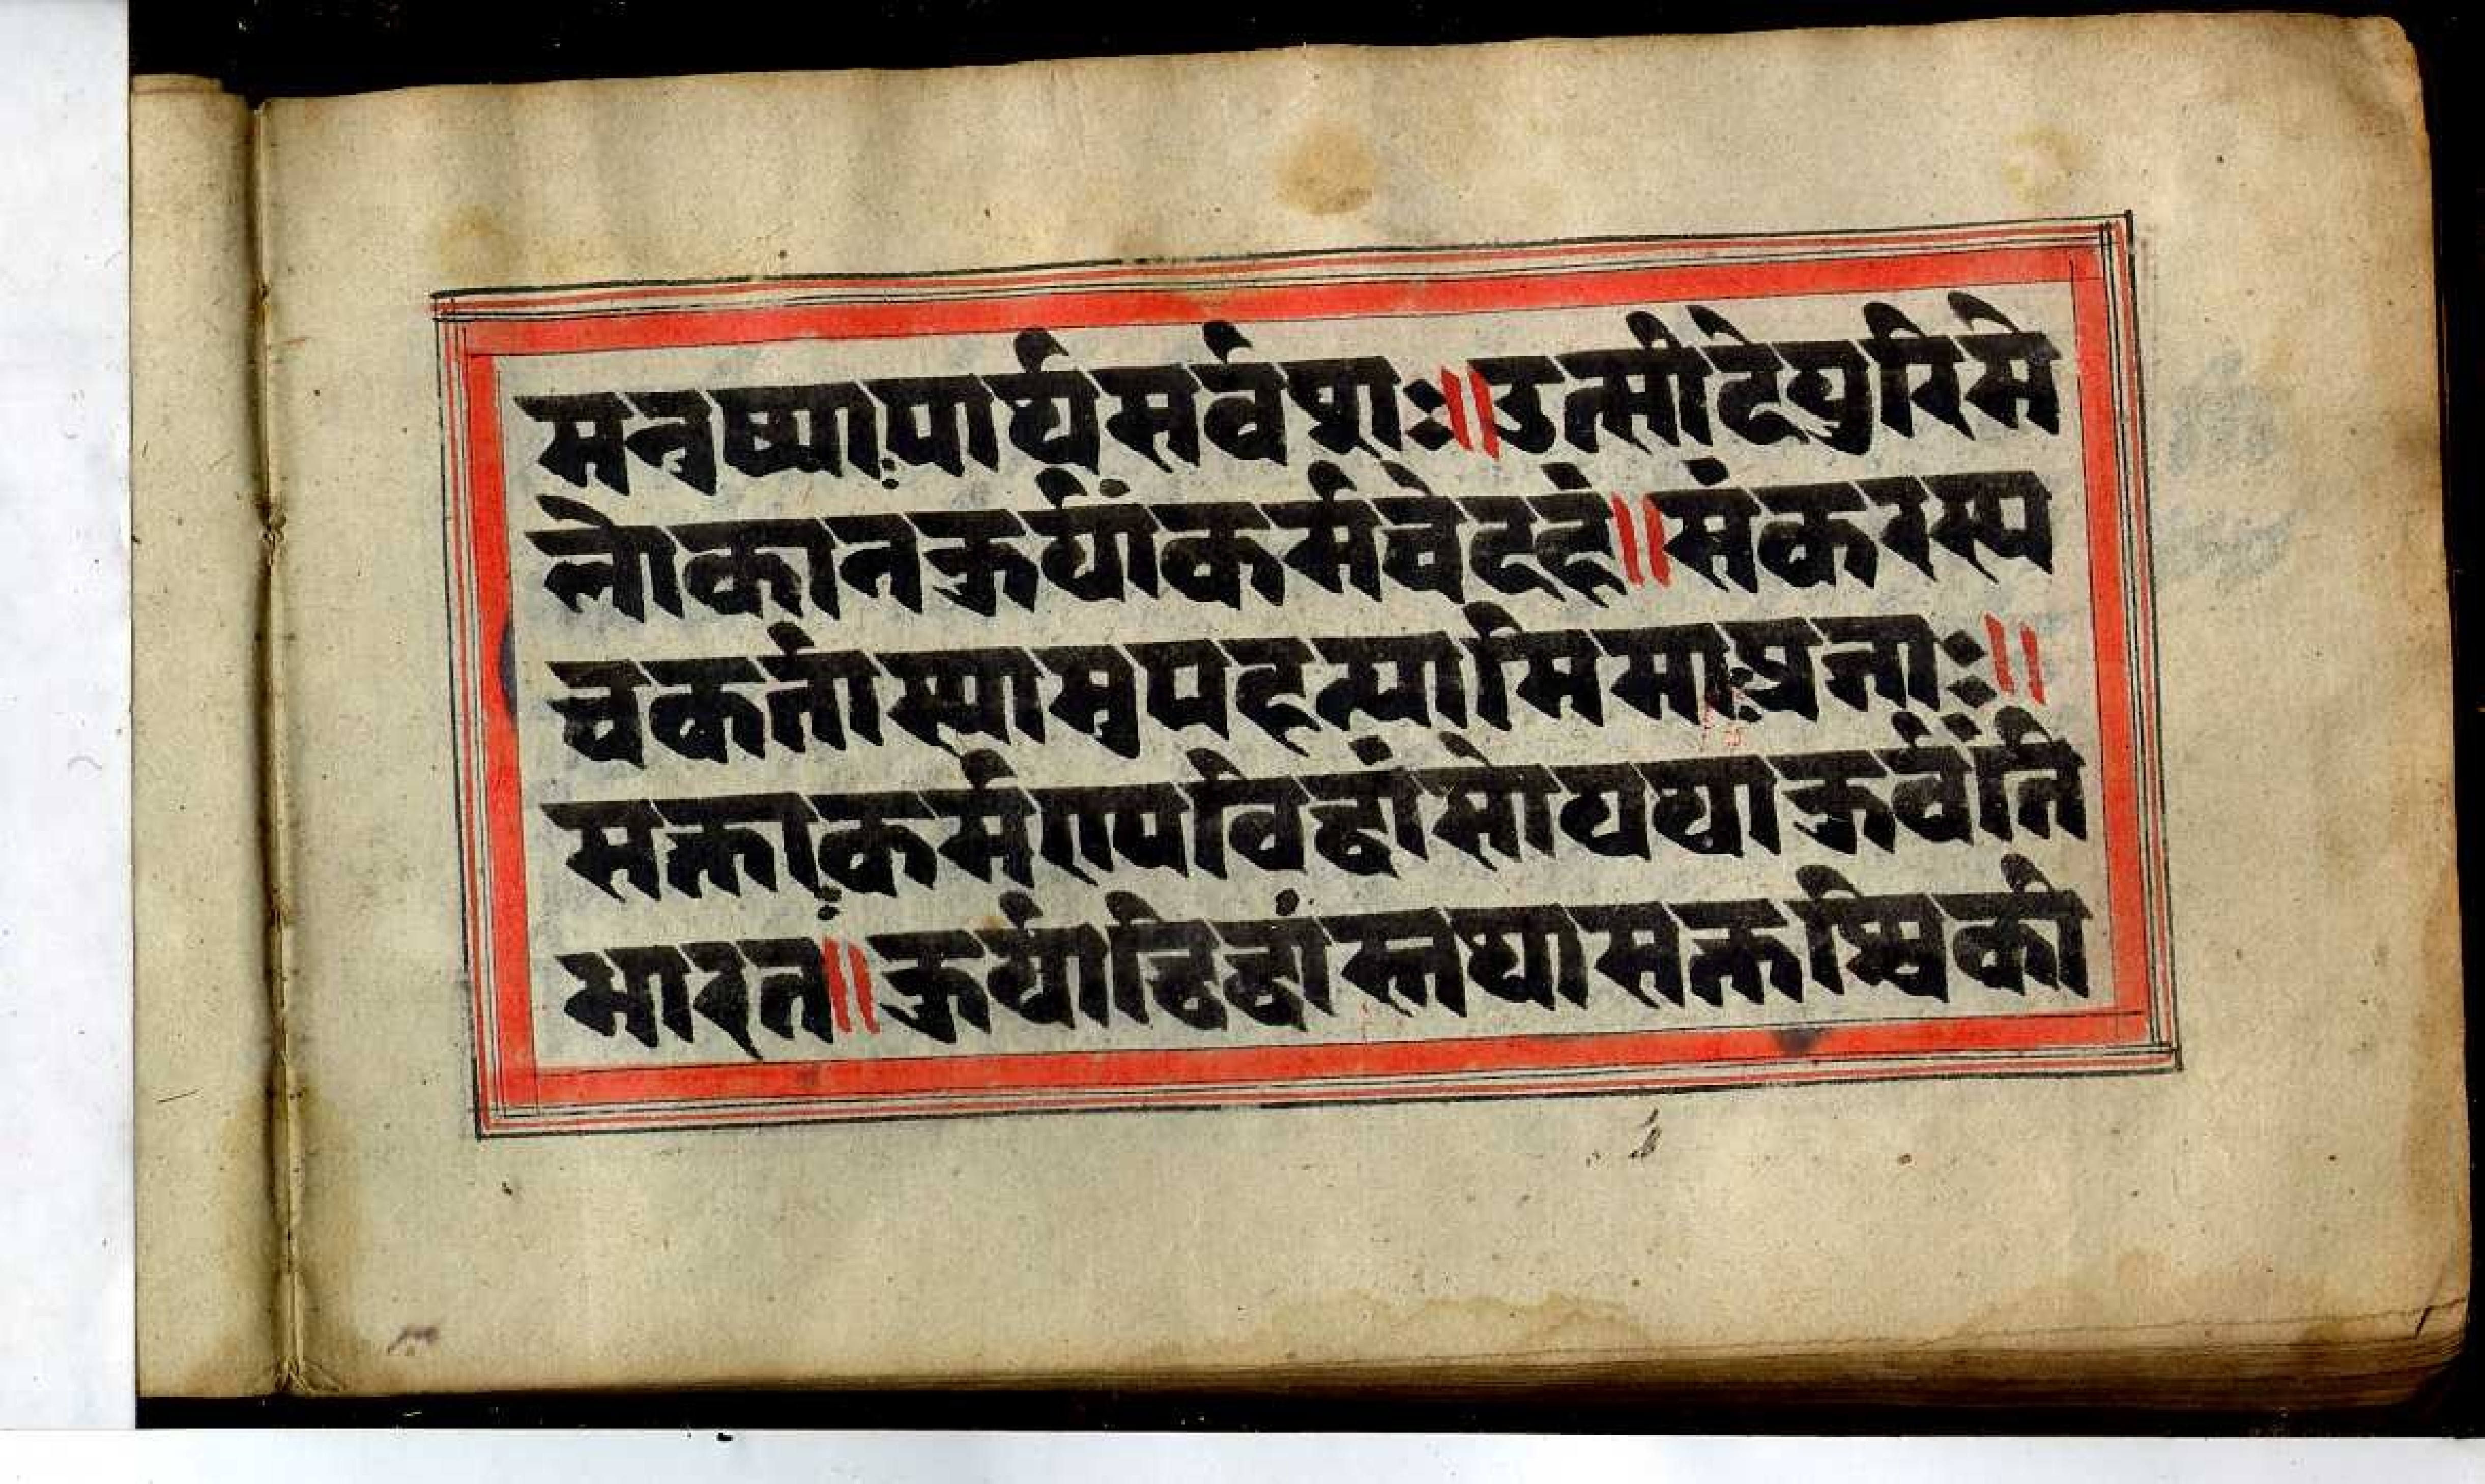 मनुष्याःपार्थसर्वशः॥उत्सीदेयुरिमे
लोकानकुर्यांकर्मचेदहं॥संकरस्य
चकर्तास्यामुपहन्यामिमाःप्रजाः॥
सक्ताःकर्मण्यविद्वांसोयथाकुर्वंति
भारत॥कुर्याद्विद्वांस्तथासक्तश्चिकी